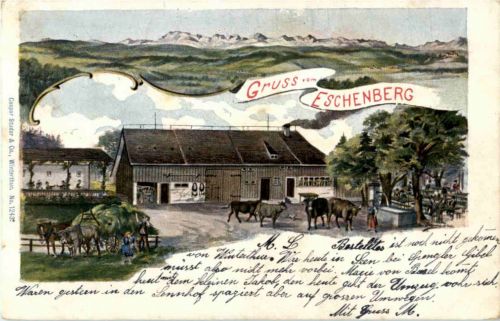 GRUSS vom ESCHENBERG
Caspar Studer & Co., Winterthur. No. 1245.
M. L. Bestelltes ist noch nicht gekommen
von Winterthur. War heute in Seen bei Spengler Gubel
musst also nicht mehr vorbei. Marie von Basel kommt
heut dem kleinen Jakob, den heute geht der Umzug vorbei sich
Waren gestern in den Sennhof spaziert aber auf grossen Umwegen
Mit Gruss M.